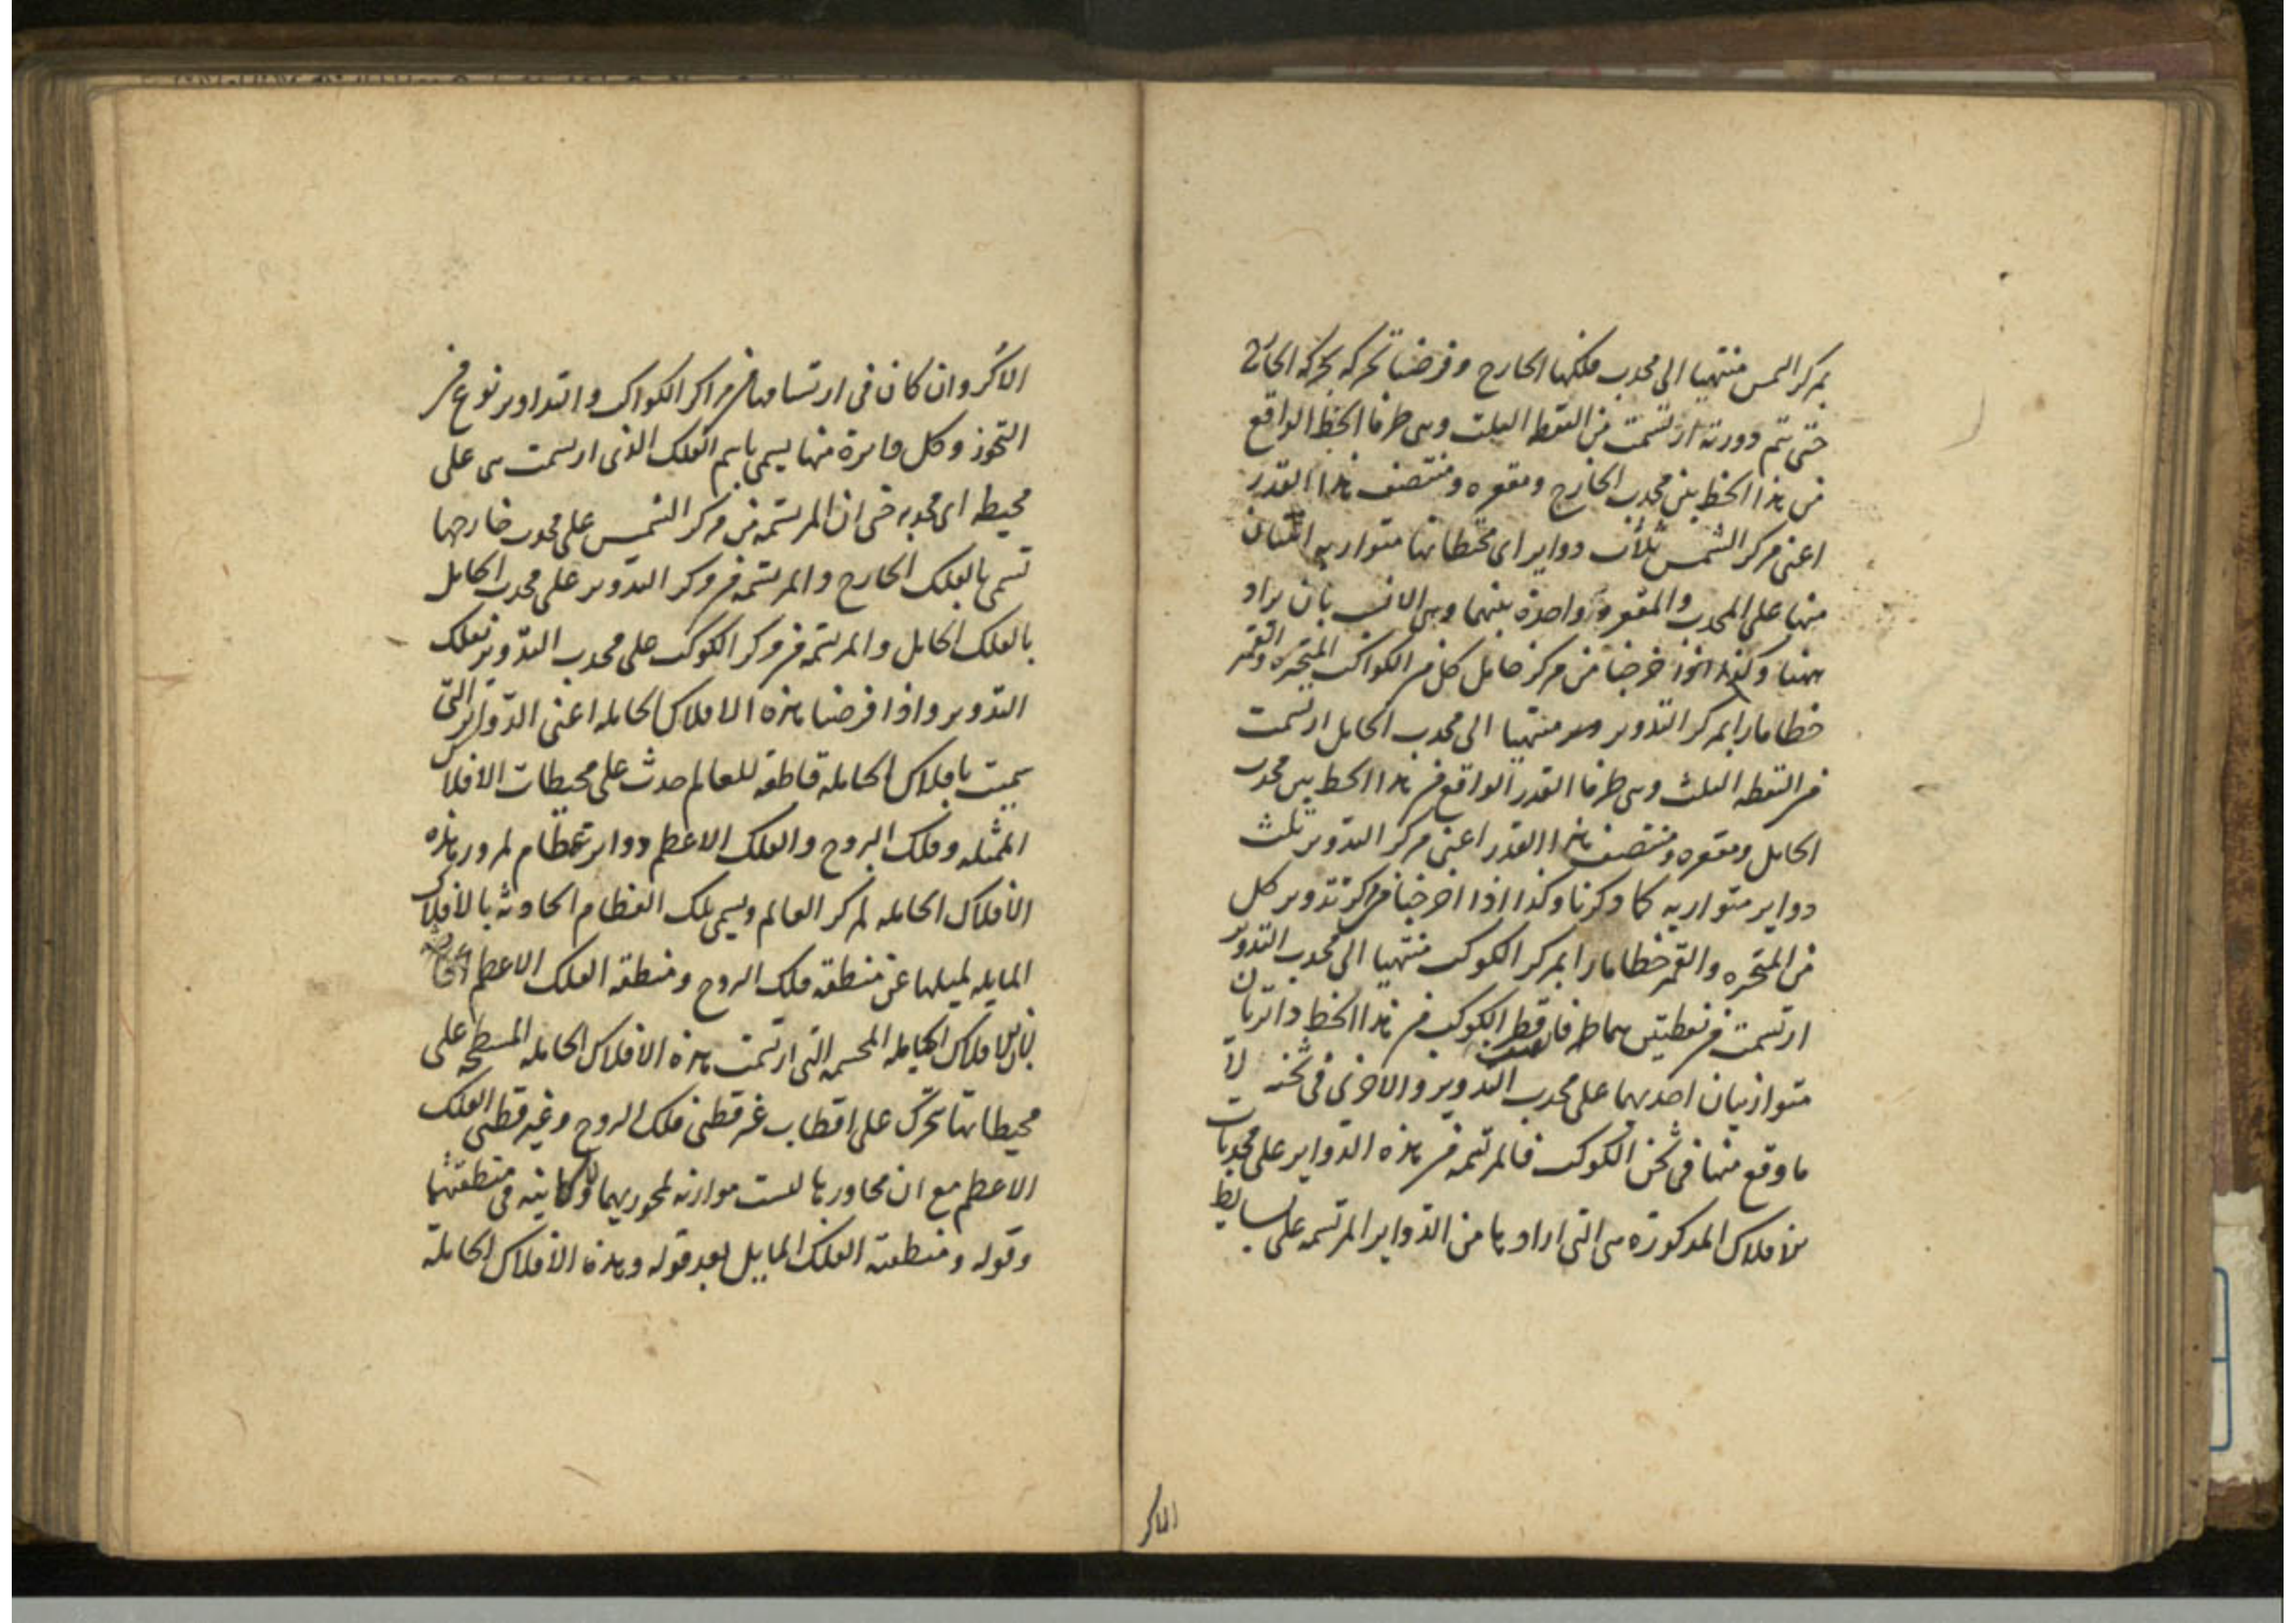 بمركز الشمس منتهيا الى محدب فلكها الخارج وفرضنا تحركه بحركة الخارج
حتى تتم دورته ارتسمت من النقط الثلث وهى طرفا الخط الواقع
من هذا الخط بين محدب الخارج ومقعره ومنتصف هذا القدر
اعنى مركز الشمس ثلاث دواير اى محيطاتها متوازيه اثنتان
منها على المحدب والمقعر وواحدة بينهما وهى الانسب بان يراد
ههنا وكذا اذا اخرجنا من مركز حامل كل من الكواكب المتحيره والقمر
خطا مارا بمركز التدوير منتهيا الى محدب الحامل ارتسمت
من النقطه الثلث وهى طرفا القدر الواقع من هذا الخط بين محدب
الحامل ومقعره ومنتصف هذا القدر اعنى مركز التدوير ثلث
دواير متوازيه كما ذكرنا وكذا اذا اخرجنا من مركز تدوير كل
من المتحيره والقمر خطا مارا بمركز الكوكب منتهيا الى محدب التدوير
ارتسمت من نقطتين هما طرفا قطر الكوكب من هذا الخط دائرتان
متوازيتان احديهما على محدب التدوير والاخرى فى ثخنه لا
ما وقع منها فى ثخن الكوكب فالمرتسمه من هذه الدواير على محدبات
الافلاك المذكورة هى التى ارادها من الدواير المرتسمه على بسايط
الاكر
الاكر وان كان فى ارتسامها من مراكز الكواكب والتداوير نوع من
التجوز وكل دائرة منها يسمى باسم الفلك الذى ارتسمت هى على
محيطه اى محدبه حتى ان المرتسمه من مركز الشمس على محدب خارجها
تسمى بالفلك الخارج والمرتسمه من مركز التدوير على محدب الحامل
بالفلك الحامل والمرتسمه من مركز الكوكب على محدب التدوير بفلك
التدوير واذا فرضنا هذه الافلاك الحامله اعنى الدواير التى
سميت بافلاك الحامله قاطعه للعالم حدث على محيطات الافلاك
الممثله وفلك البروج والفلك الاعظم دواير عظام لمرور هذه
الافلاك الحامله بمركز العالم ويسمى تلك العظام الحادثه بالافلاك
المايله لميلها عن منطقه فلك البروج ومنطقه الفلك الاعظم
لان الافلاك الحامله المجسمه التى ارتسمت هذه الافلاك الحامله المسطحه على
محيطاتها تتحرك على اقطاب غير قطبى فلك البروج وغير قطبى الفلك
الاعظم مع ان محاورها ليست موازنه لمحوريهما فى منطقتهما
وقوله ومنطقة الفلك المايل بعد قوله وهذه الافلاك الحاملة